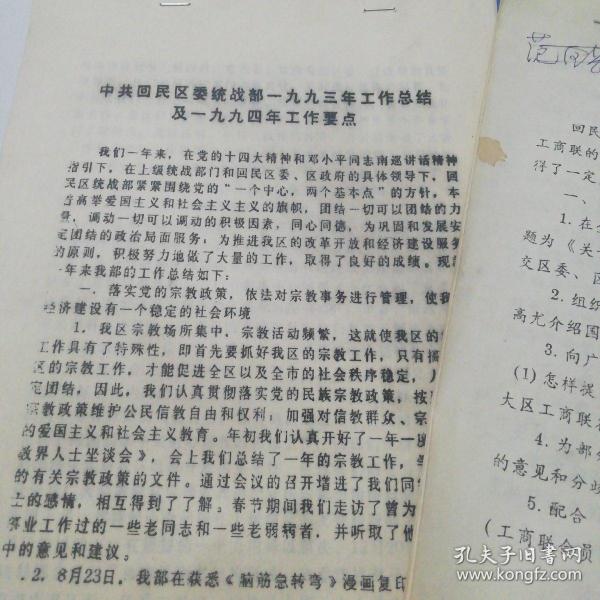 中共回民区委统战部一九九三年工作总结
及一九九四年工作要点
我们一年来，在党的十四大精神和邓小平同志南巡讲话精神
指引下，在上级统战部门和回民区委、区政府的具体领导下，回
民区统战部紧紧围绕党的“一个中心，两个基本点”的方针，本
着高举爱国主义和社会主义主义的旗帜，团结一切可以团结的力
量，调动一切可以调动的积极因素，同心同德，为巩固和发展安
定团结的政治局面服务，为推进我区的改革开放和经济建设服务
的原则，积极努力地做了大量的工作，取得了良好的成绩。现
年来我部的工作总结如下：
一、落实党的宗教政策，依法对宗教事务进行管理，使我
经济建设有一个稳定的社会环境
1，我区宗教场所集中，宗教活动频繁，这就使我区的
工作具有了特殊性，即首先要抓好我区的宗教工作，只有
区的宗教工作，才能促进全区以及全市的社会秩序稳定，
定团结，因此，我们认真贯彻落实党的民族宗教政策，按
宗教政策维护公民信教自由和权利；加强对信教群众、宗
的爱国主义和社会主义教育。年初我们认真开好了一年一
教界人士坐谈会》，会上我们总结了一年的宗教工作，
的有关宗教政策的文件。通过会议的召开增进了我们同
士的感情，相互得到了了解。春节期间我们走访了曾为
事业工作过的一些老同志和一些老弱病者，并听取了他
中的意见和建议。
.2，8月23日，我部在获悉《脑筋急转弯》漫画复印
回民
工商联的
得了一定
一、
1.在
题为《关
交区委、
2.组织
高尤介绍国
3.向广
(1)怎样提
大区工商联
4.为部
的意见和分歧
5.配合
(工商联会员
孔夫子旧书网
www.kongfz.com